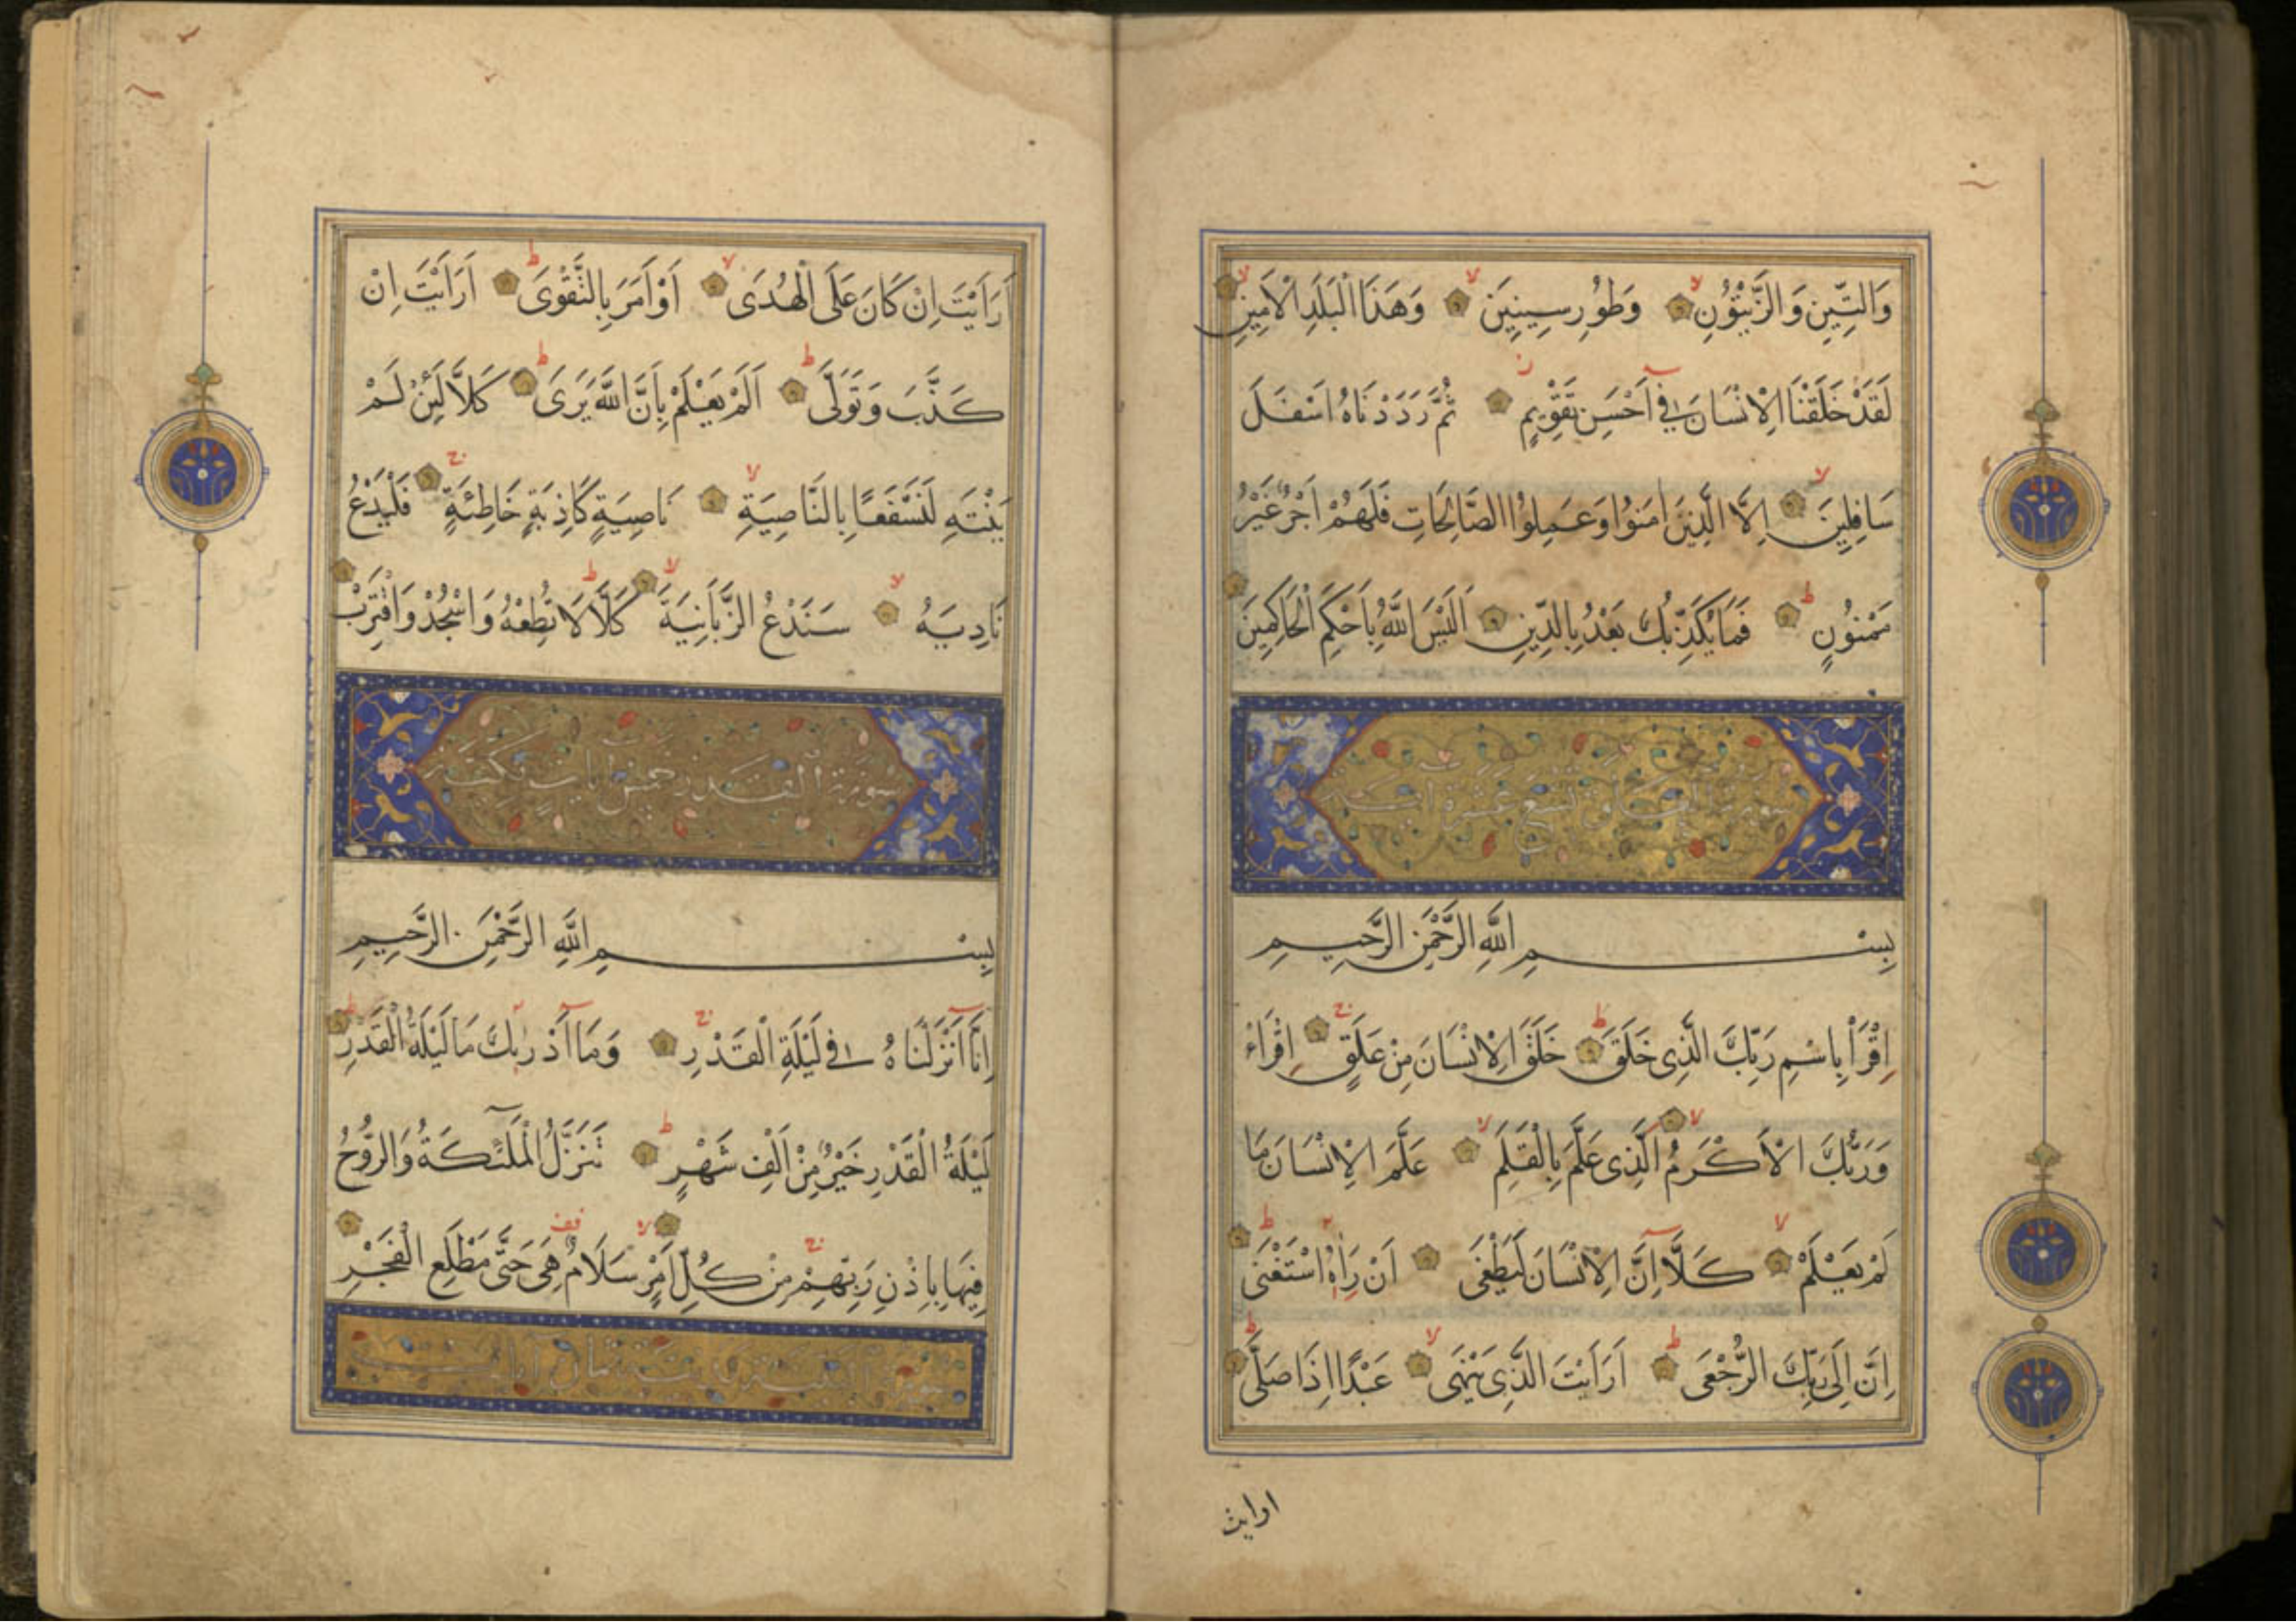 وَالتِّينِ وَالزَّيْتُونِ وَطُورِ سِينِينَ وَهَذَا الْبَلَدِ الْاَمِينِ
لَقَدْ خَلَقْنَا الْاِنْسَانَ فِي اَحْسَنِ تَقْوِيمٍ ثُمَّ رَدَدْنَاهُ اَسْفَلَ
سَافِلِينَ اِلَّا الَّذِينَ اٰمَنُوا وَعَمِلُوا الصَّالِحَاتِ فَلَهُمْ اَجْرٌ غَيْرُ
مَمْنُونٍ فَمَا يُكَذِّبُكَ بَعْدُ بِالدِّينِ اَلَيْسَ اللَّهُ بِاَحْكَمِ الْحَاكِمِينَ
سورة العلق تسع عشرة اية
بِسْمِ اللَّهِ الرَّحْمَنِ الرَّحِيمِ
اِقْرَأْ بِاسْمِ رَبِّكَ الَّذِي خَلَقَ خَلَقَ الْاِنْسَانَ مِنْ عَلَقٍ اِقْرَاْء
وَرَبُّكَ الْاَكْرَمُ الَّذِي عَلَّمَ بِالْقَلَمِ عَلَّمَ الْاِنْسَانَ مَا
لَمْ يَعْلَمْ كَلَّا اِنَّ الْاِنْسَانَ لَيَطْغَى اَنْ رَاٰهُ اسْتَغْنَى
اِنَّ اِلَى رَبِّكَ الرُّجْعَى اَرَاَيْتَ الَّذِي يَنْهَى عَبْدًا اِذَا صَلَّى
ارايت
اَرَاَيْتَ اِنْ كَانَ عَلَى الْهُدَى اَوْ اَمَرَ بِالتَّقْوَى اَرَاَيْتَ اِنْ
كَذَّبَ وَتَوَلَّى اَلَمْ يَعْلَمْ بِاَنَّ اللَّهَ يَرَى كَلَّا لَئِنْ لَمْ
يَنْتَهِ لَنَسْفَعًا بِالنَّاصِيَةِ نَاصِيَةٍ كَاذِبَةٍ خَاطِئَةٍ فَلْيَدْعُ
نَادِيَهُ سَنَدْعُ الزَّبَانِيَةَ كَلَّا لَا تُطِعْهُ وَاسْجُدْ وَاقْتَرِبْ
سورة القدر خمس ايات مكية
بِسْمِ اللَّهِ الرَّحْمَنِ الرَّحِيمِ
اِنَّا اَنْزَلْنَاهُ فِي لَيْلَةِ الْقَدْرِ وَمَا اَدْرٰيكَ مَا لَيْلَةُ الْقَدْرِ
لَيْلَةُ الْقَدْرِ خَيْرٌ مِنْ اَلْفِ شَهْرٍ تَنَزَّلُ الْمَلٰٓئِكَةُ وَالرُّوحُ
فِيهَا بِاِذْنِ رَبِّهِمْ مِنْ كُلِّ اَمْرٍ سَلَامٌ هِيَ حَتَّى مَطْلَعِ الْفَجْرِ
سورة ثمان ايات